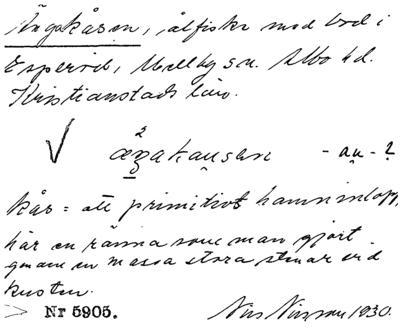 Ängakåsen, ålfiske med bod i
Esperöd, Mellby sn. Albo hd.
Kristianstads län.
√ ængakausen - au - 2
kås = ett primitivt hamninlopp,
här en ränna som man gjort
genom en massa stora stenar vid
kusten.
> Nr 5905. Nils Nilsson 1930.